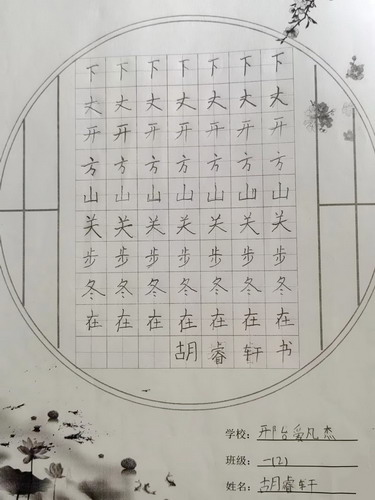 下下下下下下下
丈丈丈丈丈丈丈
开开开开开开开
方方方方方方方
山山山山山山山
关关关关关关关
步步步步步步步
冬冬冬冬冬冬冬
在在在在在在在
胡睿轩书
学校：邢台爱凡杰
班级：一(2)
姓名：胡睿轩